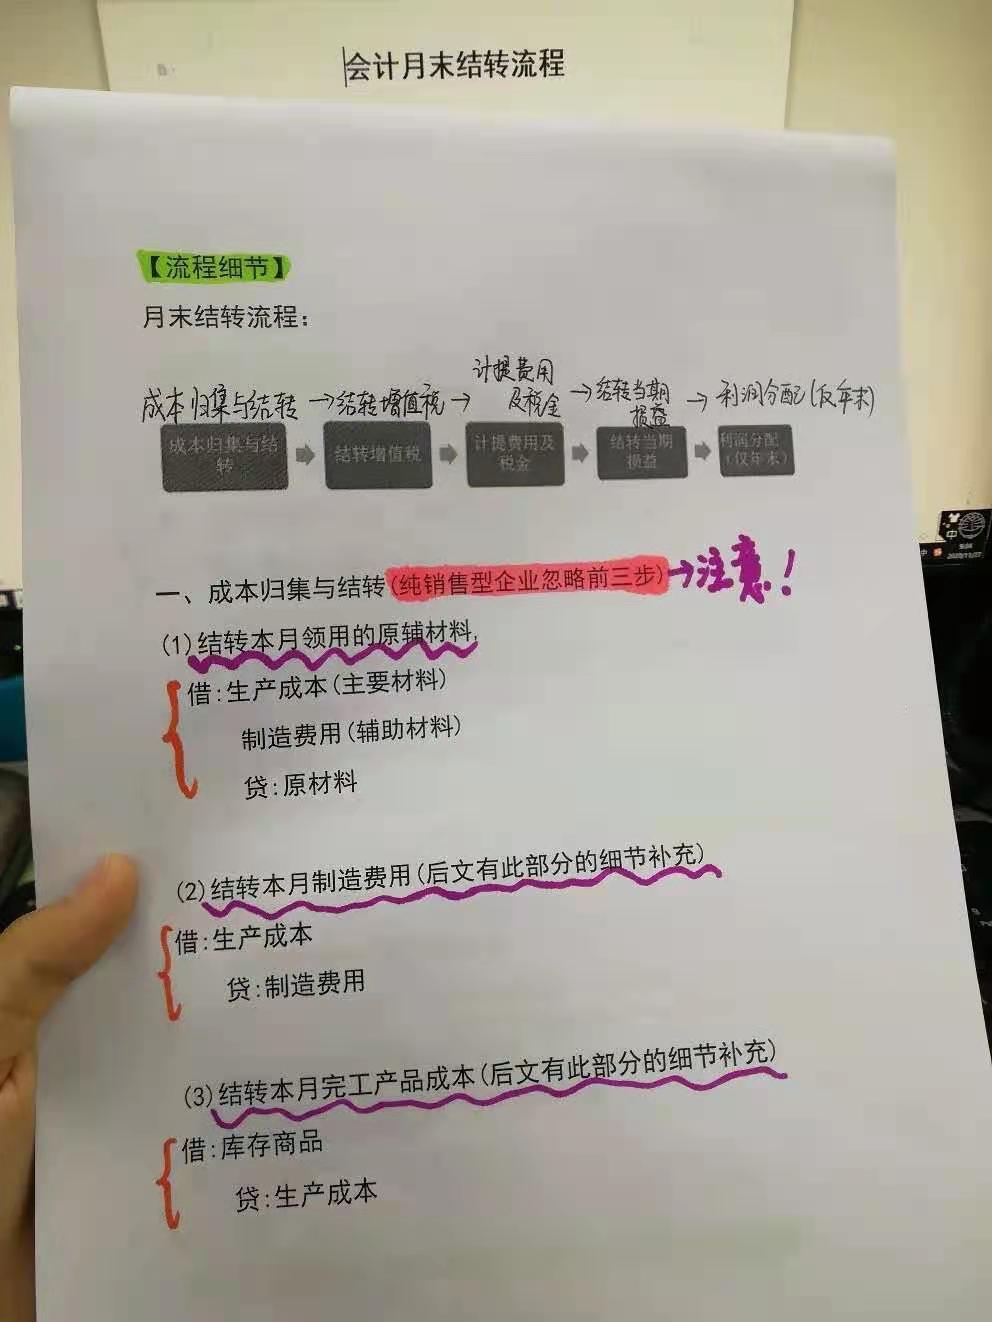 会计月末结转流程
【流程细节】
月末结转流程：
成本归集与结转→结转增值税→计提费用及税金→结转当期损益→利润分配(仅年末)
成本归集与结转
结转增值税
计提费用及税金
结转当期损益
利润分配（仅年末）
一、成本归集与结转(纯销售型企业忽略前三步)→注意！
(1)结转本月领用的原辅材料,
借:生产成本(主要材料)
制造费用(辅助材料)
贷:原材料
(2)结转本月制造费用(后文有此部分的细节补充)
借:生产成本
贷:制造费用
(3)结转本月完工产品成本(后文有此部分的细节补充)
借:库存商品
贷:生产成本